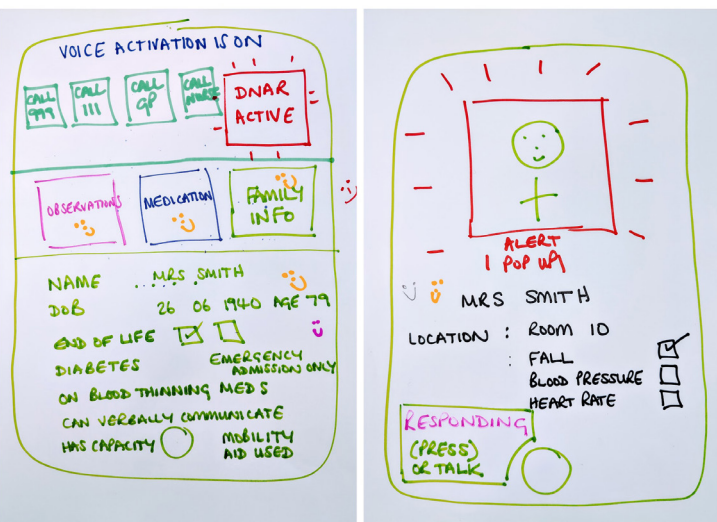 VOICE ACTIVATION IS ON
CALL 999
CALL 111
CALL GP
CALL NURSE
DNAR ACTIVE
OBSERVATIONS
MEDICATION
FAMILY INFO
NAME MRS SMITH
DOB 26 06 1940 AGE 79
END OF LIFE
DIABETES
EMERGENCY ADMISSION ONLY
ON BLOOD THINNING MEDS
CAN VERBALLY COMMUNICATE
HAS CAPACITY
MOBILITY AID USED
ALERT
POP UP
MRS SMITH
LOCATION : ROOM 10
: FALL
BLOOD PRESSURE
HEART RATE
RESPONDING
(PRESS)
OR TALK